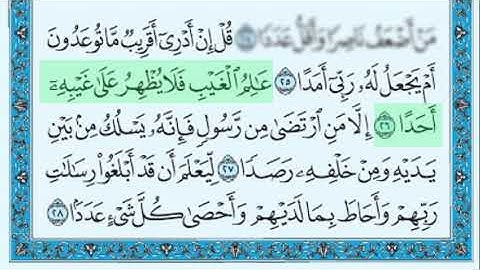 مَنْ أَضْعَفُ نَاصِرًا وَأَقَلُّ عَدَدًا ٢٤ قُلْ إِنْ أَدْرِىٓ أَقَرِيبٌ مَّا تُوعَدُونَ
أَمْ يَجْعَلُ لَهُۥ رَبِّىٓ أَمَدًا ٢٥ عَٰلِمُ ٱلْغَيْبِ فَلَا يُظْهِرُ عَلَىٰ غَيْبِهِۦٓ
أَحَدًا ٢٦ إِلَّا مَنِ ٱرْتَضَىٰ مِن رَّسُولٍ فَإِنَّهُۥ يَسْلُكُ مِنۢ بَيْنِ
يَدَيْهِ وَمِنْ خَلْفِهِۦ رَصَدًا ٢٧ لِّيَعْلَمَ أَن قَدْ أَبْلَغُوا۟ رِسَٰلَٰتِ
رَبِّهِمْ وَأَحَاطَ بِمَا لَدَيْهِمْ وَأَحْصَىٰ كُلَّ شَىْءٍ عَدَدًۢا ٢٨